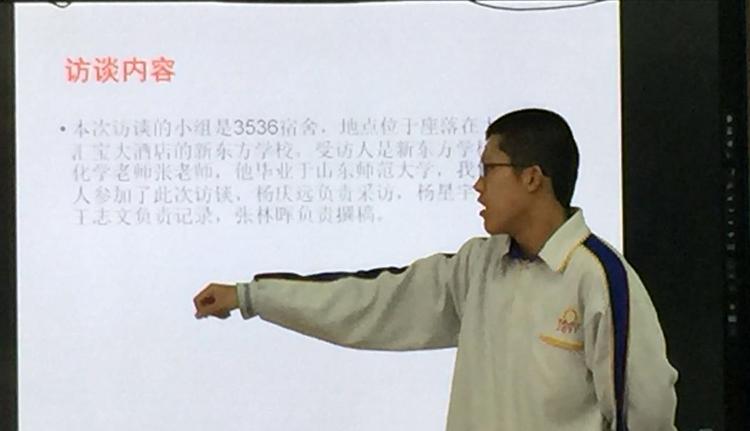 访谈内容
• 本次访谈的小组是3536宿舍，地点位于座落在
汇宝大酒店的新东方学校。受访人是新东方学校
化学老师张老师，他毕业于山东师范大学，我
人参加了此次访谈，杨庆远负责采访，杨星宇
王志文负责记录，张林晖负责撰稿。